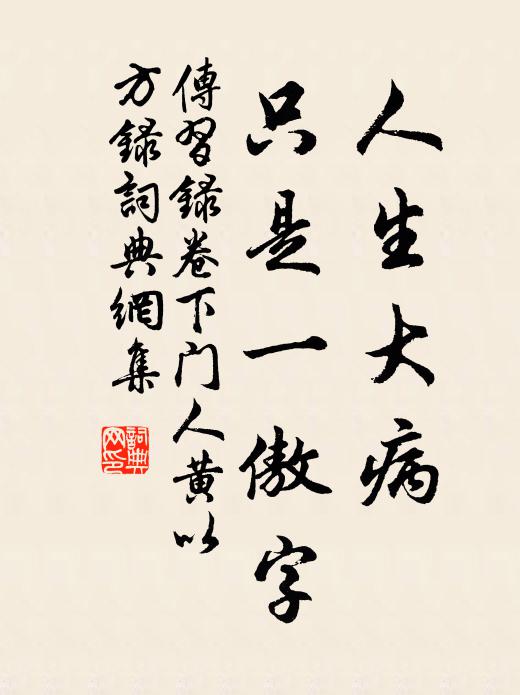 人生大病
只是一傲字
傳習録卷下门人黄以
方録詞典網集
詞典网印